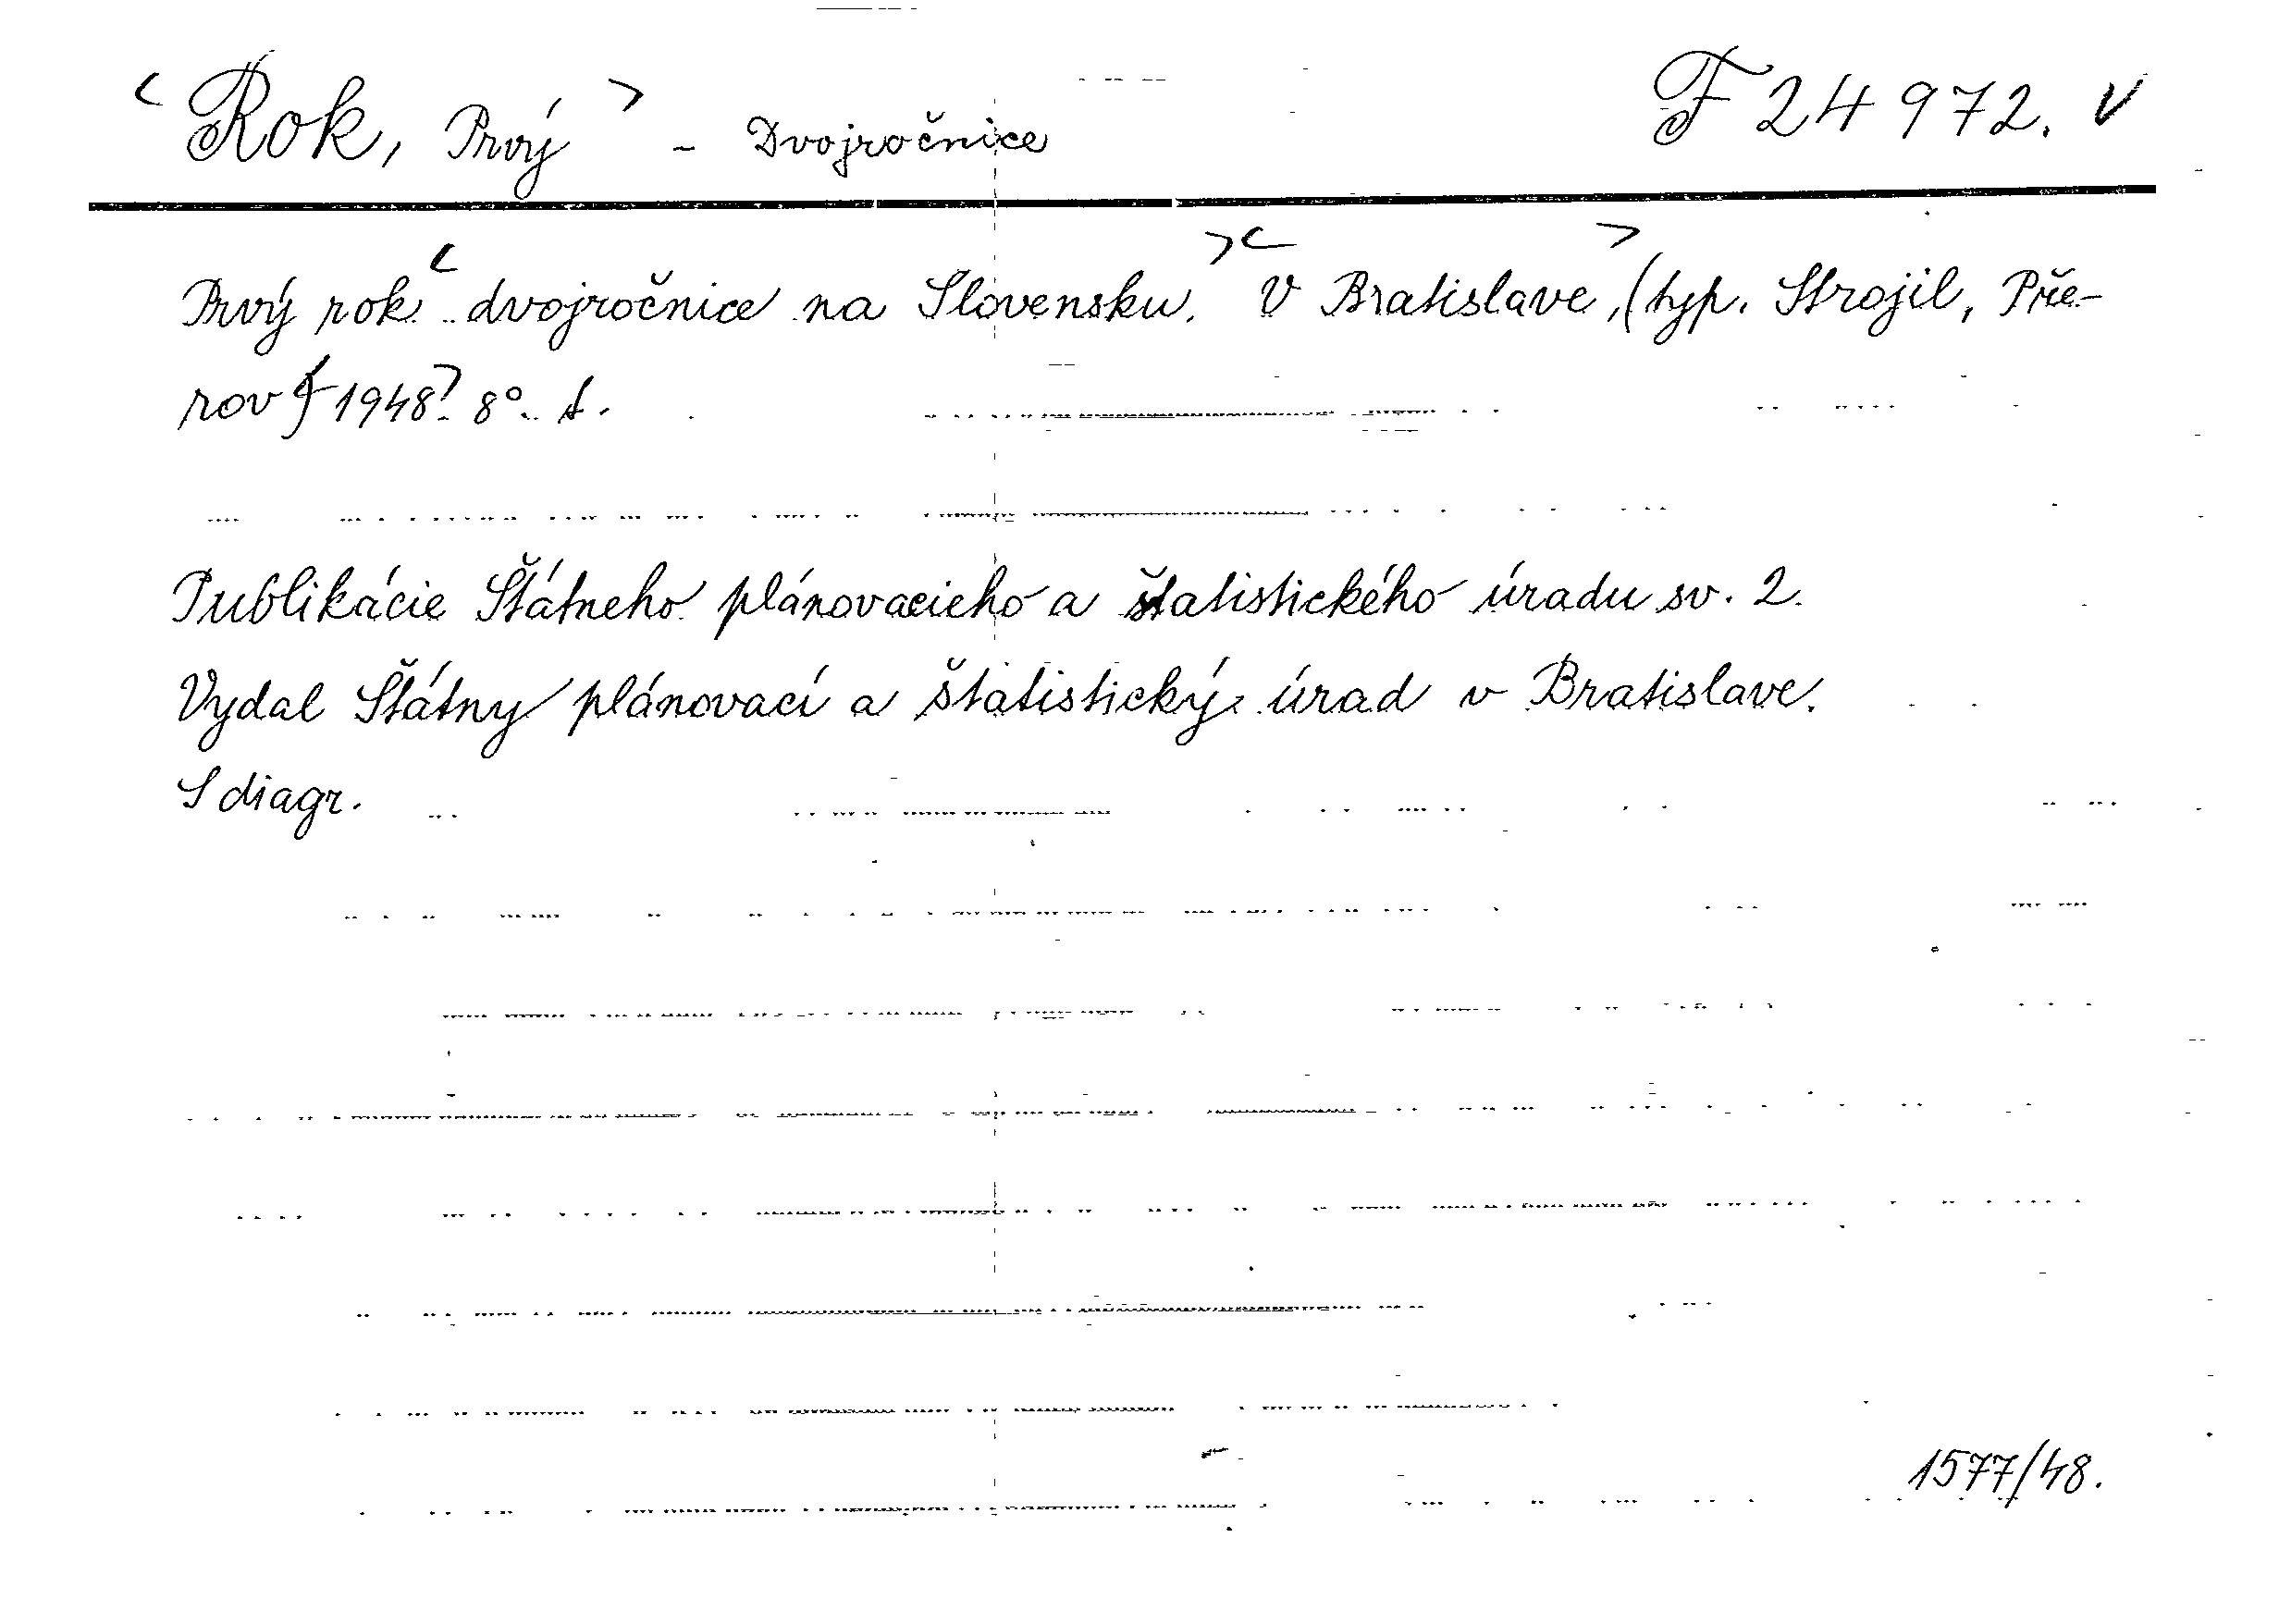 <Rok, Prvý> - Dvojročnice F 24972. v
Prvý rok <dvojročnice na Slovensku.> <V Bratislave,> (typ. Strojil, Pře-
rov) <1948>. 8°. s.
Publikácie Štátneho plánovacieho a štatistického úradu sv. 2.
Vydal Štátny plánovací a štatistický úrad v Bratislave.
S diagr.
1577/48.